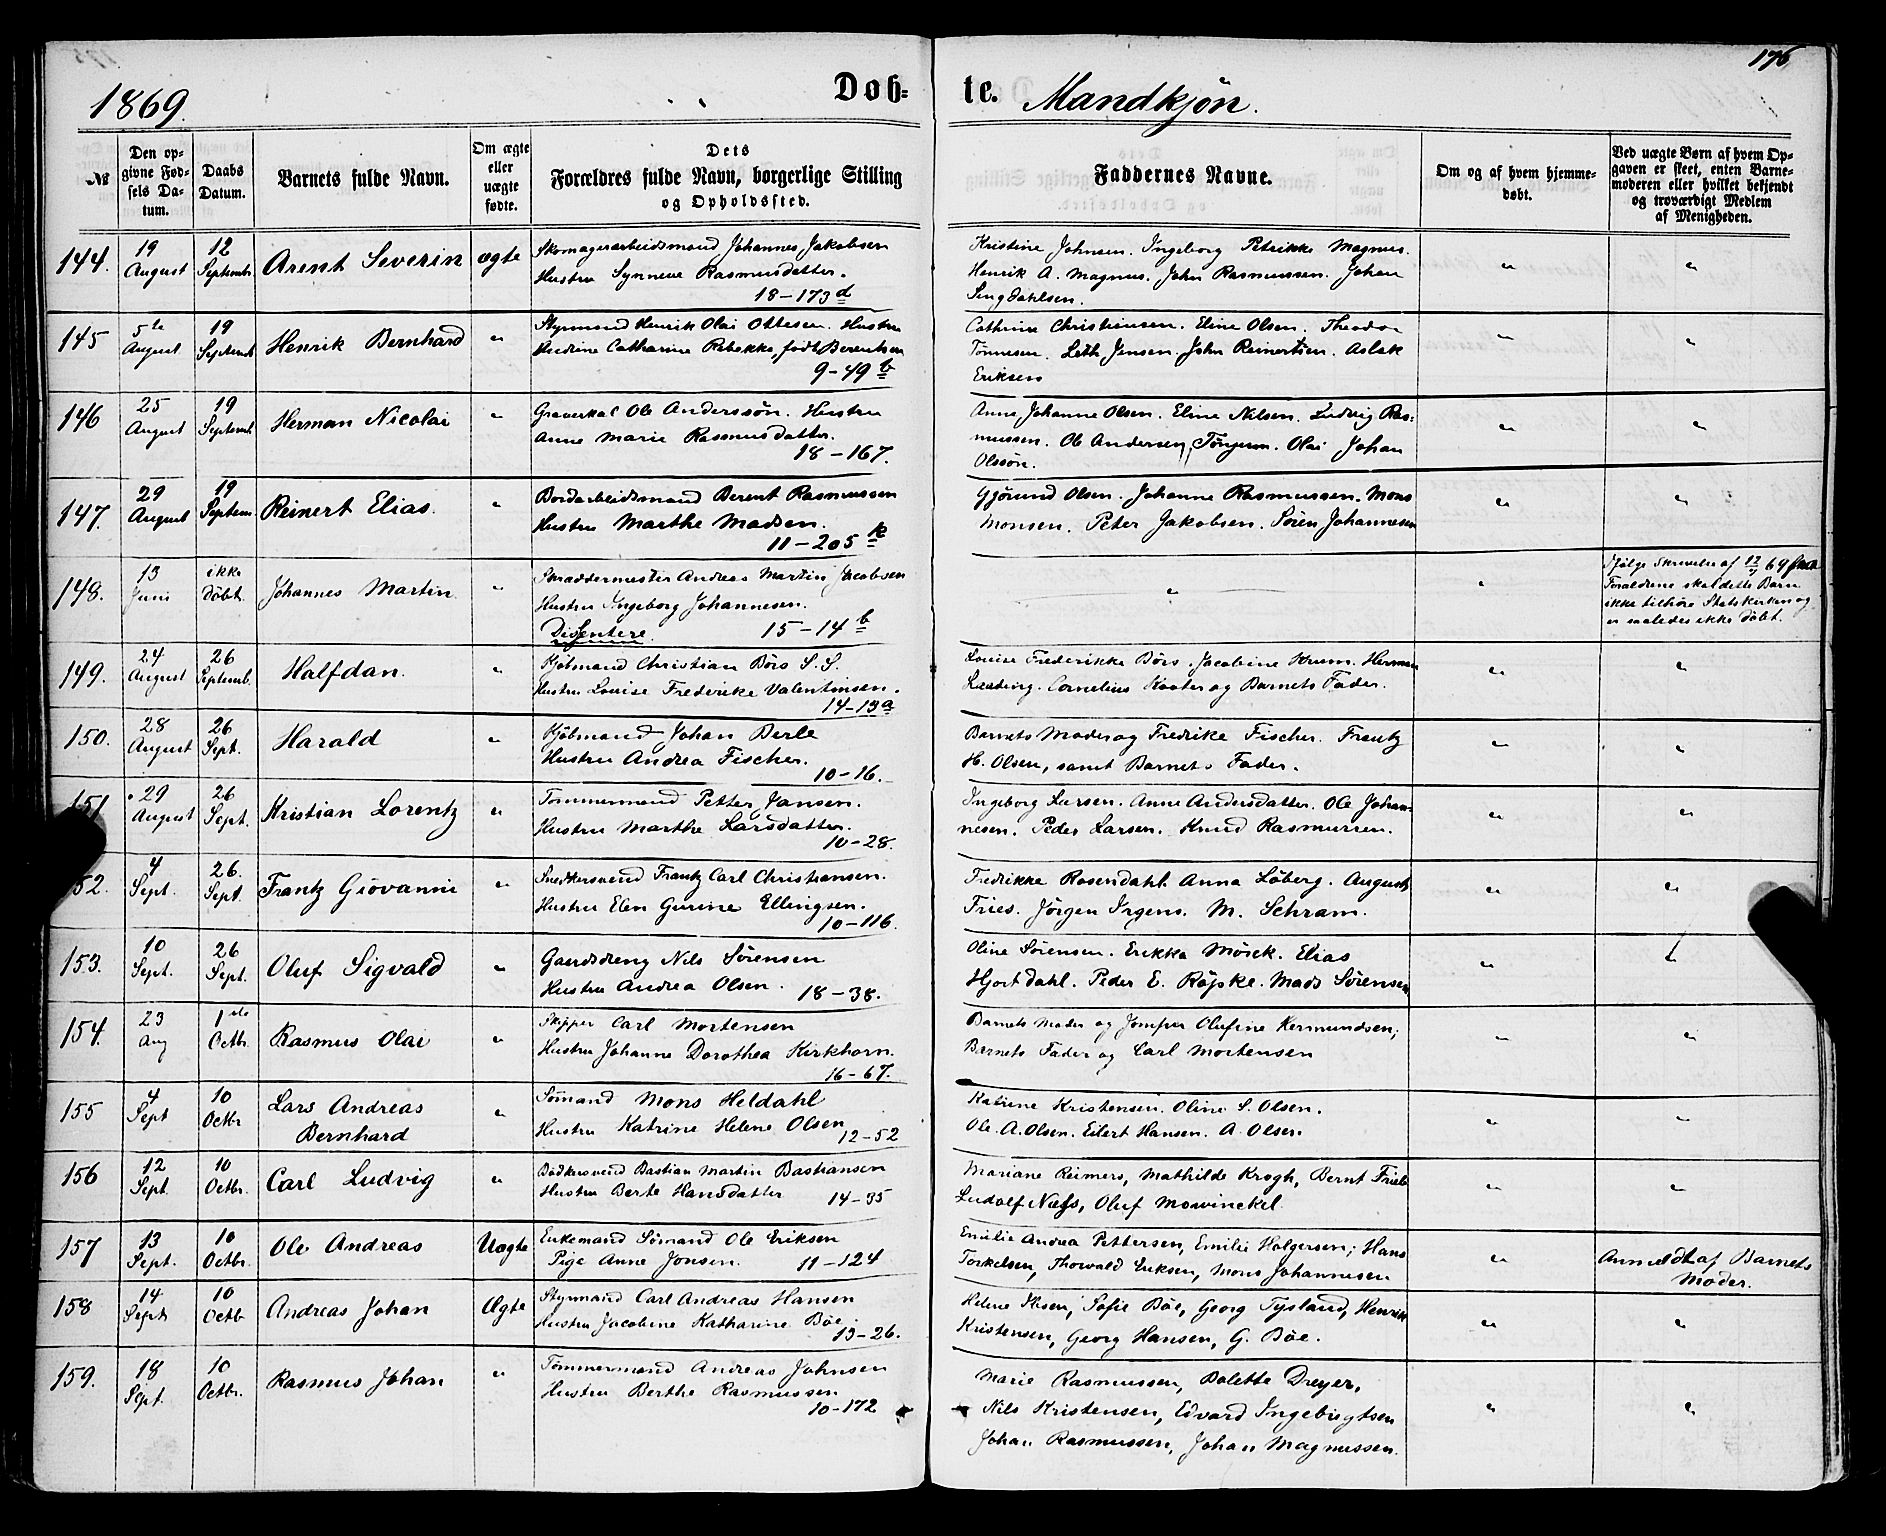 176
1869.
Døb-
te. Mandkjön.
№
Den op-
givne Fød-
sels Da-
tum.
Daabs
Datum.
Barnets fulde Navn.
Om ægte
eller
uægte
fødte.
Dets
Forældres fulde Navn, borgerlige Stilling
og Opholdssted.
Faddernes Navne.
Om og af hvem hjemme-
døbt.
Ved uægte Børn af hvem Op-
gaven er skeet, enten Barne-
moderen eller hvilket bekjendt
og troværdigt Medlem
af Menigheden.
144. 19 August 12 Septembr Arent Severin ægte
Skomagerarbeidsmand Johannes Jakobsen
Hustru Synneve Rasmusdatter.
18-173 d
Kristine Johnsen. Ingeborg Petrikke Magnus.
Henrik A. Magnus. John Rasmussen. Johan
Sengdahlsen.
145 5te August 19 Septemb Henrik Bernhard "
Styrmand Henrik Olai Ottesen. Hustru
Andrine Catharine Rebekka, født Berentsen
9-49 b
Cathrine Christensen. Eline Olsen. Theodor
Tönnesen. Leth Jensen. John Reinertsen. Aslak
Eriksen
146 25 August 19 Septemb. Herman Nicolai "
Graverkal Ole Anderssön. Hustru
Anne Marie Rasmusdatter.
18-167.
Anne Johanne Olsen. Eline Nilsen. Ludvig Ras-
mussen. Ole Andersen, Olai Johan
Olssön.
147. 29 August 19 Septem. Reinert Elias. "
Bordarbeidsmand Berent Rasmussen
Hustru Marthe Madsen.
11-205 k
Gjörund Olsen. Johanne Rasmussen. Mons
Monsen. Peter Jakobsen. Sören Johannesen
148. 13 Juni ikke Döbt. Johannes Martin "
Skræddermester Andreas Martin Jacobsen
Hustru Ingeborg Johannesen.
Dissentere. 15-14 b
Ifölge Skrivelse af 69 fra
Forældrene skal dette Barn
ikke tilhöre Statskirken og
er saaledes ikke döbt.
149. 24 August 26 Septemb. Halfdan. "
Kjöbmand Christian Börs S. S.
Hustru Louise Frederike Valentinsen.
14-13 a
Louise Frederikke Börs. Jacobine Krum. Herman
Ludvig. Cornelius Konter og Barnets Fader.
150. 28 August 26 Sept. Harald "
Kjöbmand Johan Berle
Hustru Andrea Fischer.
10-16.
Barnets Moder og Fredrike Fischer. Frantz
H. Olsen, samt Barnets Fader.
151 29 August 26 Sept. Kristian Lorentz "
Tömmermand Petter Jansen.
Hustru Marthe Larsdatter.
10-28.
Ingeborg Larsen. Anne Andersdatter. Ole Johan-
nesen. Peder Larsen. Knud Rasmussen.
52. 4 Sept. 26. Sept. Frantz Giovanni "
Snedkersvend Frantz Carl Christiansen.
Hustru Elen Gurine Ellingsen.
10-116.
Fredrikke Rosendahl. Anna Löberg. August
Fries. Jörgen Irgens. M. Schram.
153. 10 Sept. 26 Sept. Oluf Sigvald "
Gaardsdreng Nils Sörensen
Hustru Andrea Olsen. 18-38.
Oline Sörensen. Erikka Mörck. Elias
Hjortdahl. Peder E. Röpke. Mads Sörensen
154. 23 Aug 1ste Octb. Rasmus Olai "
Skipper Carl Mortensen
Hustru Johanne Dorothea Kirkhorn.
16-67.
Barnets Moder og Jomfru Olufine Kermundsen;
Barnets Fader og Carl Mortensen
155 4 Sept 10 Octbr Lars Andreas
Bernhard "
Sömand Mons Heldahl
Hustru Katrine Helene Olsen 12-52
Katrine Kristensen. Oline S. Olsen.
Ole. A. Olsen. Eilert Hansen. A. Olsen
156 12 Sept. 10 Octbr. Carl Ludvig "
Bödkersvend Bastian Martin Bastiansen
Hustru Berte Hansdatter 14-35
Mariane Reimers, Mathilde Krogh, Bernt Friele
Ludolf Næss, Oluf Mowinckel.
157 13 Sept. 10 Octbr. Ole Andreas Uægte
Enkemand Sömand Ole Eriksen
Pige Anne Jonsen. 11-124
Emilie Andrea Pettersen, Emilie Holgersen; Hans
Torkelsen, Thorvald Eriksen, Mons Johannesen
Anmeldt af Barnets
Moder.
158 14 Sept 10 Octb Andreas Johan Ægte
Styrmand Carl Andreas Hansen
Hustru Jacobine Katharine Böe.
13-26.
Helene Ibsen, Sofie Böe, Georg Tysland, Henrik
Kristensen, Georg Hansen, G. Böe.
159. 18 Sept. 10 Octbr. Rasmus Johan "
Tömmermand Andreas Johnsen
Hustru Berthe Rasmussen
10-172
Marie Rasmussen, Bolette Dreyer,
Nils Kristensen, Edvard Ingebrigtsen
Johan Rasmussen, Johan Magnussen.